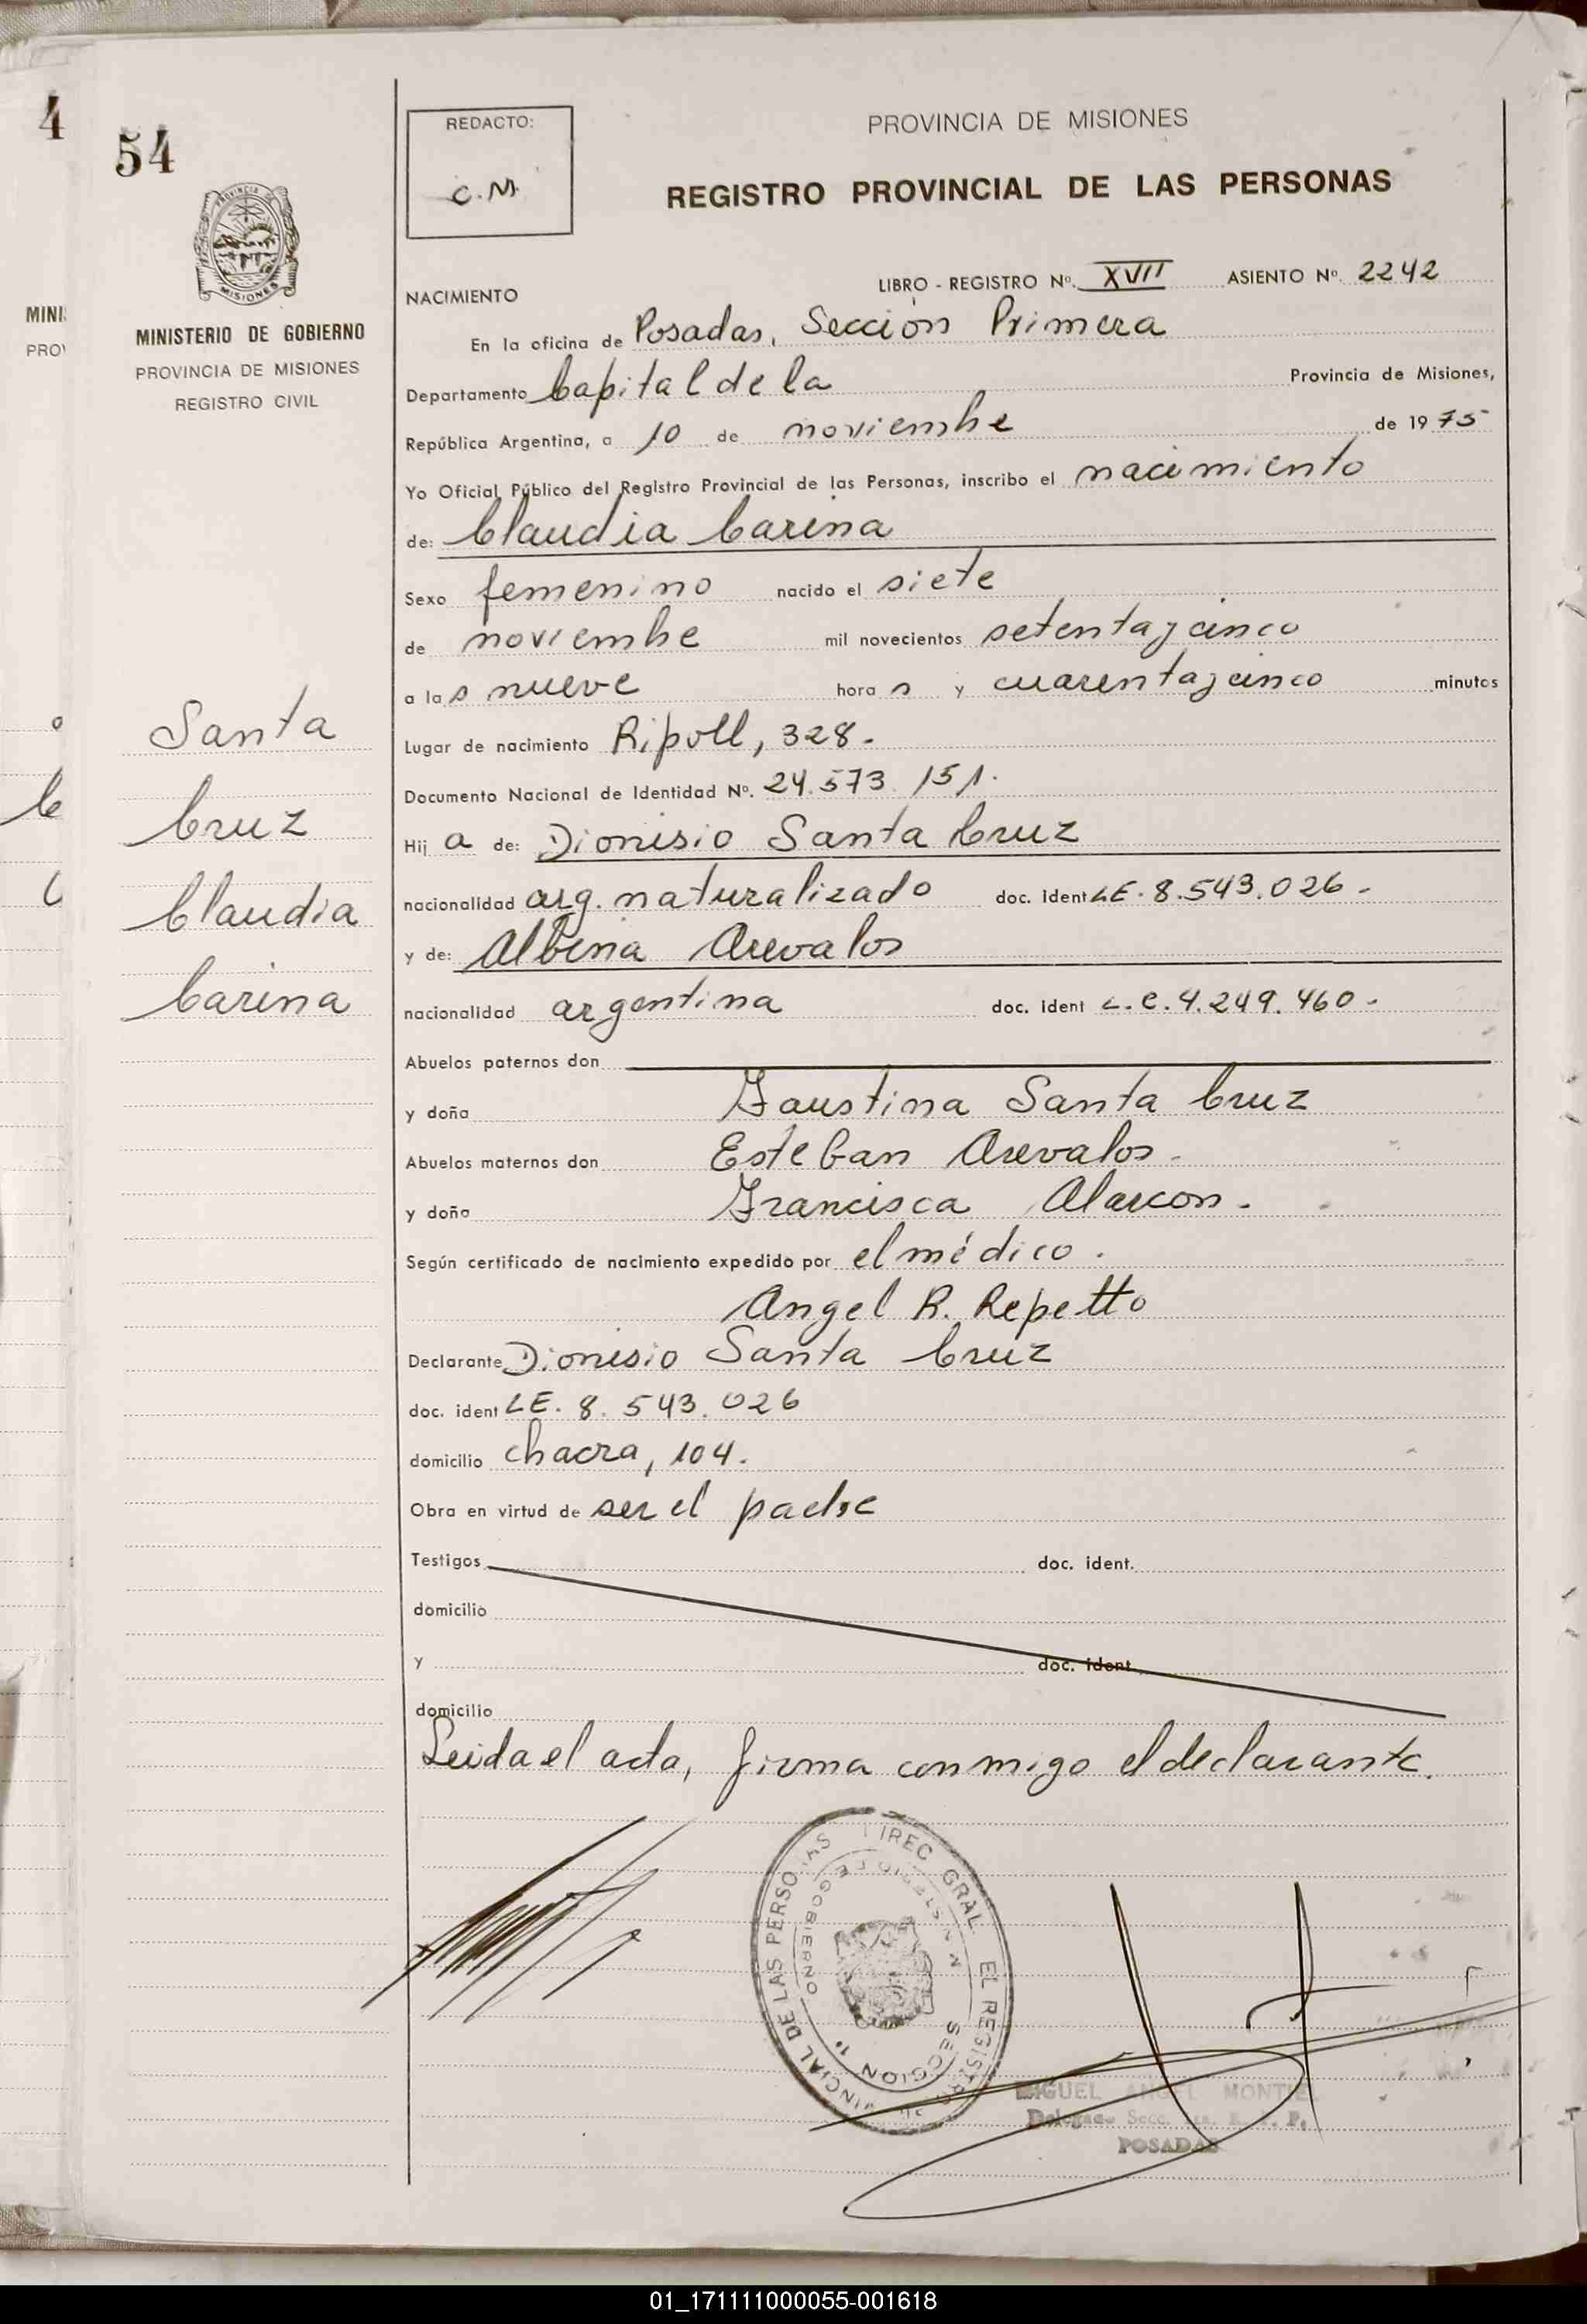 4
54
MINISTERIO DE GOBIERNO
PROVINCIA DE MISIONES
REGISTRO CIVIL
Santa
Cruz
Claudia
Carina
REDACTO:
C.M.
PROVINCIA DE MISIONES
REGISTRO PROVINCIAL DE LAS PERSONAS
NACIMIENTO
LIBRO - REGISTRO Nº. XVII ASIENTO Nº. 2242
En la oficina de Posadas, Sección Primera
Departamento Capital de la Provincia de Misiones,
República Argentina, a 10 de noviembre de 1975
Yo Oficial Público del Registro Provincial de las Personas, inscribo el nacimiento
de: Claudia Carina
Sexo femenino nacido el siete
de noviembre mil novecientos setenta y cinco
a las nueve horas y cuarenta y cinco minutos
Lugar de nacimiento Ripoll, 328.
Documento Nacional de Identidad Nº. 24.573.151.
Hija de: Dionisio Santa Cruz
nacionalidad arg. naturalizado doc. ident LE. 8.543.026.
y de: Albina Arevalos
nacionalidad argentina doc. ident L.C. 4.249.460.
Abuelos paternos don
y doña Faustina Santa Cruz
Abuelos maternos don Esteban Arevalos.
y doña Francisca Alarcon.
Según certificado de nacimiento expedido por el médico.
Angel R. Repetto
Declarante Dionisio Santa Cruz
doc. ident LE. 8.543.026
domicilio chacra, 104.
Obra en virtud de ser el padre
Testigos doc. ident.
domicilio
y doc. ident.
domicilio
Leida el acta, firma conmigo el declarante.
SECCION 1ª
MIGUEL ANGEL MONTIEL
POSADAS
01_171111000055-001618